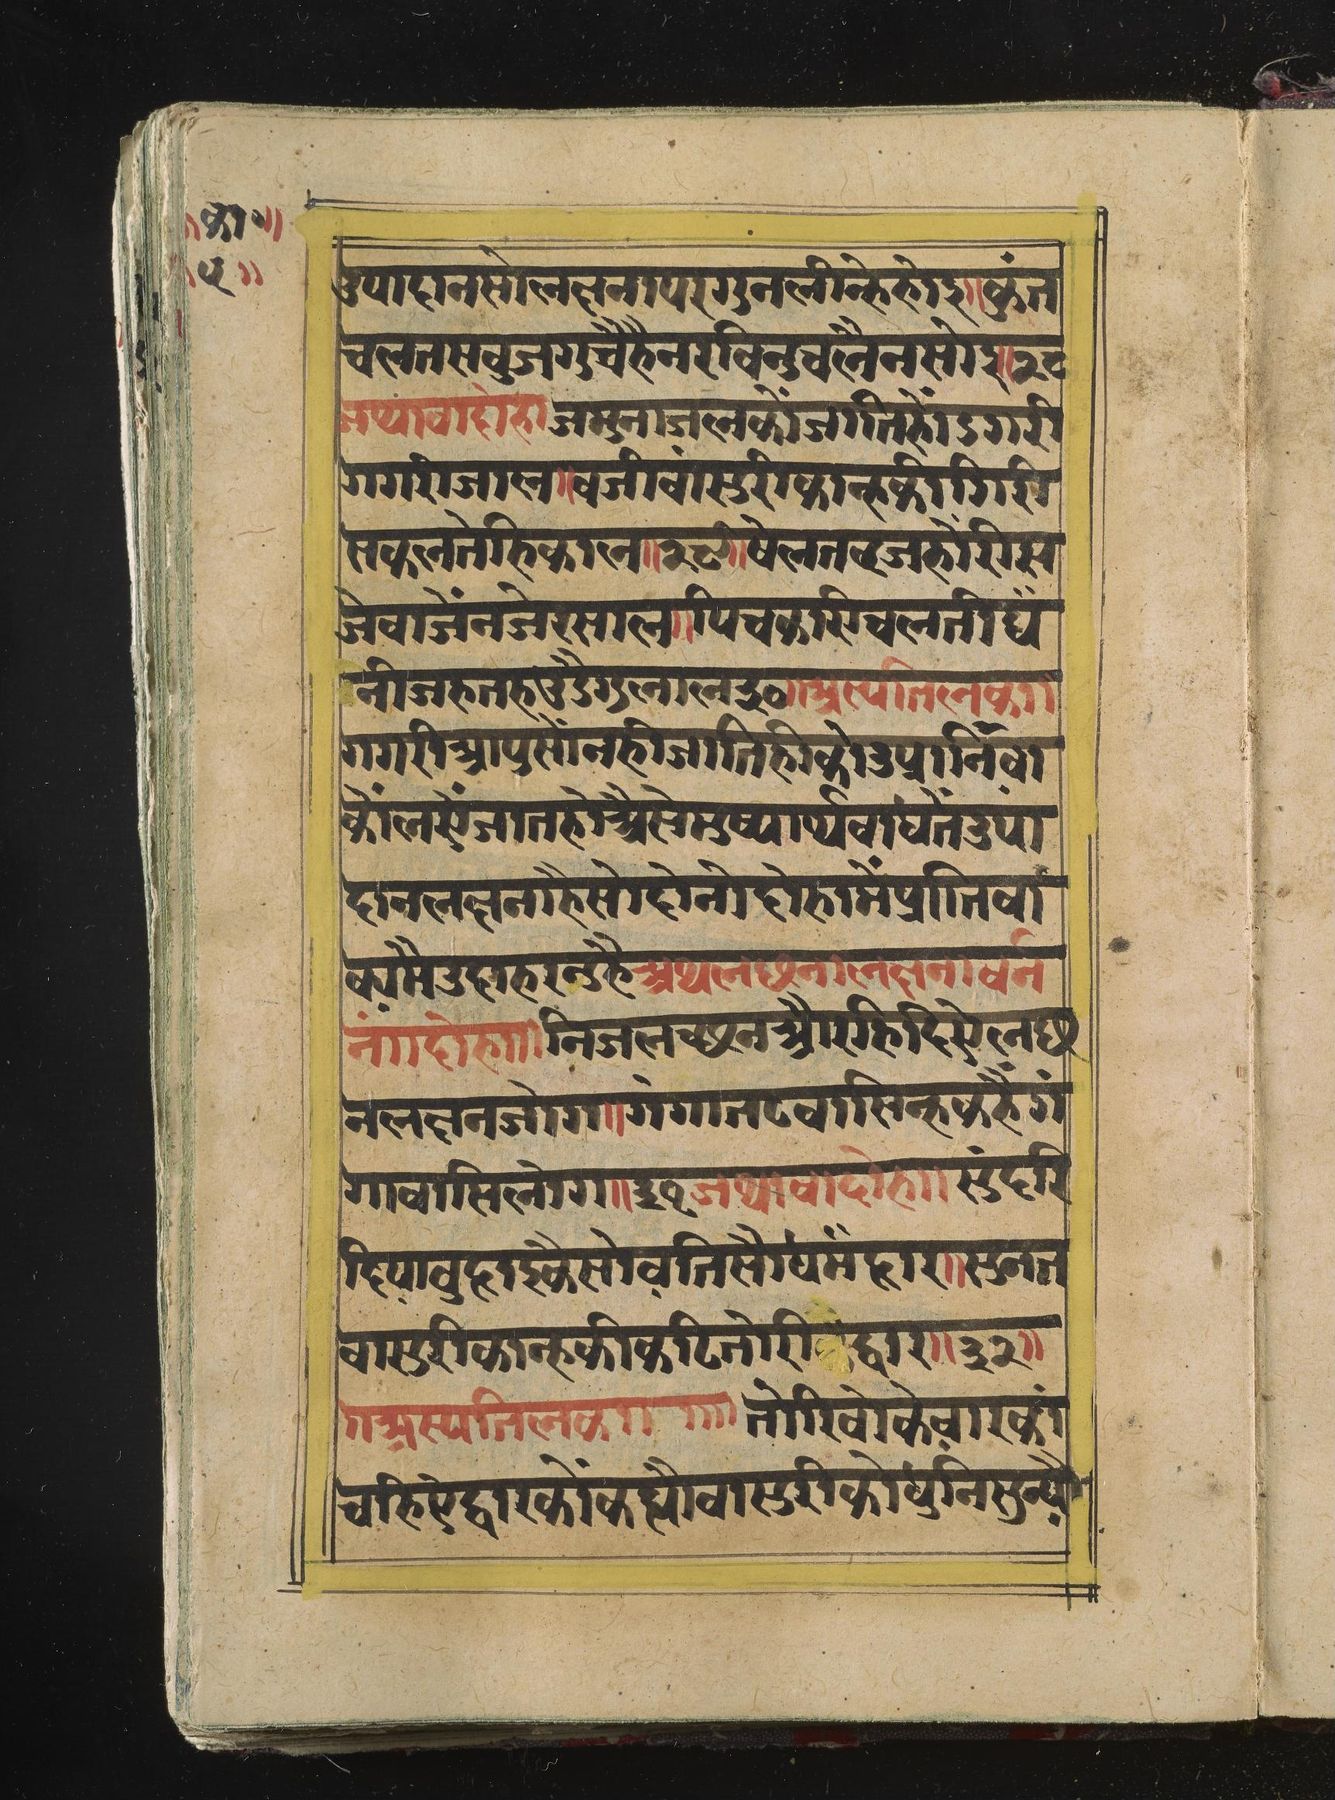 ॥का॰॥
५॥
उपादानसोलक्षनापरगुनलीन्हेहोइ॥कुंत
चलतसवुजगुचैहैनरविनुचलैनसोइ॥२८
जथावादोहा जमुनाजलकोंजातिहोंडगरी
गगरीजाल॥वजीवांसुरीकान्हकीगिरी
सकलतेहिकाल॥२९॥षेलतव्रजहोरीस
जेवाजेंनजेरसाल॥पिचकारीचलतीघं
नीजहतहउडैगुलाल३०॥अस्यतिलका
गगरीआपुसोंनहीजातिहीकोउप्रानिवा
कोंलएंजातहोअैसेमुष्यार्थवाधेतेंउपा
दानलक्षनाहैसोदोनोदोहामेंप्रतिवा
क्यमैउदाहरनुहैअथलछनालक्षनावर्न
नं॥दोहा॥निजलच्छनअौरहिदिएलछ
नलक्षनजोग॥गंगातटवासिन्हकहैंगं
गावासिलोग॥३१जथावादोहा॥सुंदरि
दियावुझाइकैसोवतिसौधमंझार॥सुनत
वासुरीकान्हकीकढितोरी द्वार॥३२॥
॥अस्यतिलका॥ ॥॥तोरिवोकेवारकों
चहिऐद्वारकोंकह्यौवासुरीकोधुनिसुन्यौ